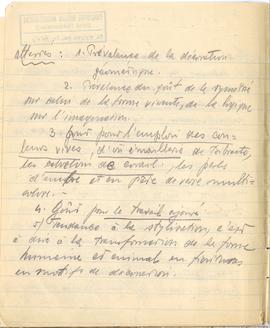 1. Prévalence de la décoration
géométrique.
2. Prévalence du goût de la symétrie
sur celui de la forme vivante, de la logique
sur l'imagination.
3. goût pour l'emploi des cou-
leurs vives, d'où
les de corail, les perles
d'ambre et en pâte de verre multi-
colore.
4. Goût pour le travail ajouré
5) Tendance à la stylisation, c'est
à dire à la transformation de la forme
humaine et animale en
en motifs de décoration.